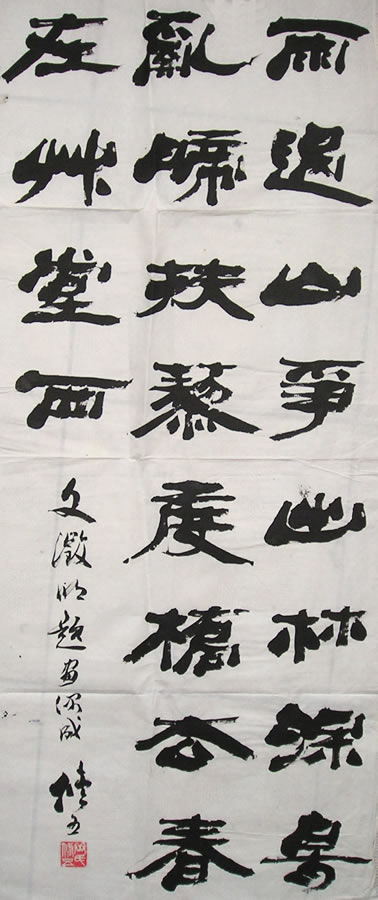 雨過山爭出林深鳥
亂啼扶藜度橋去春
在艸堂西
文徵明題畫